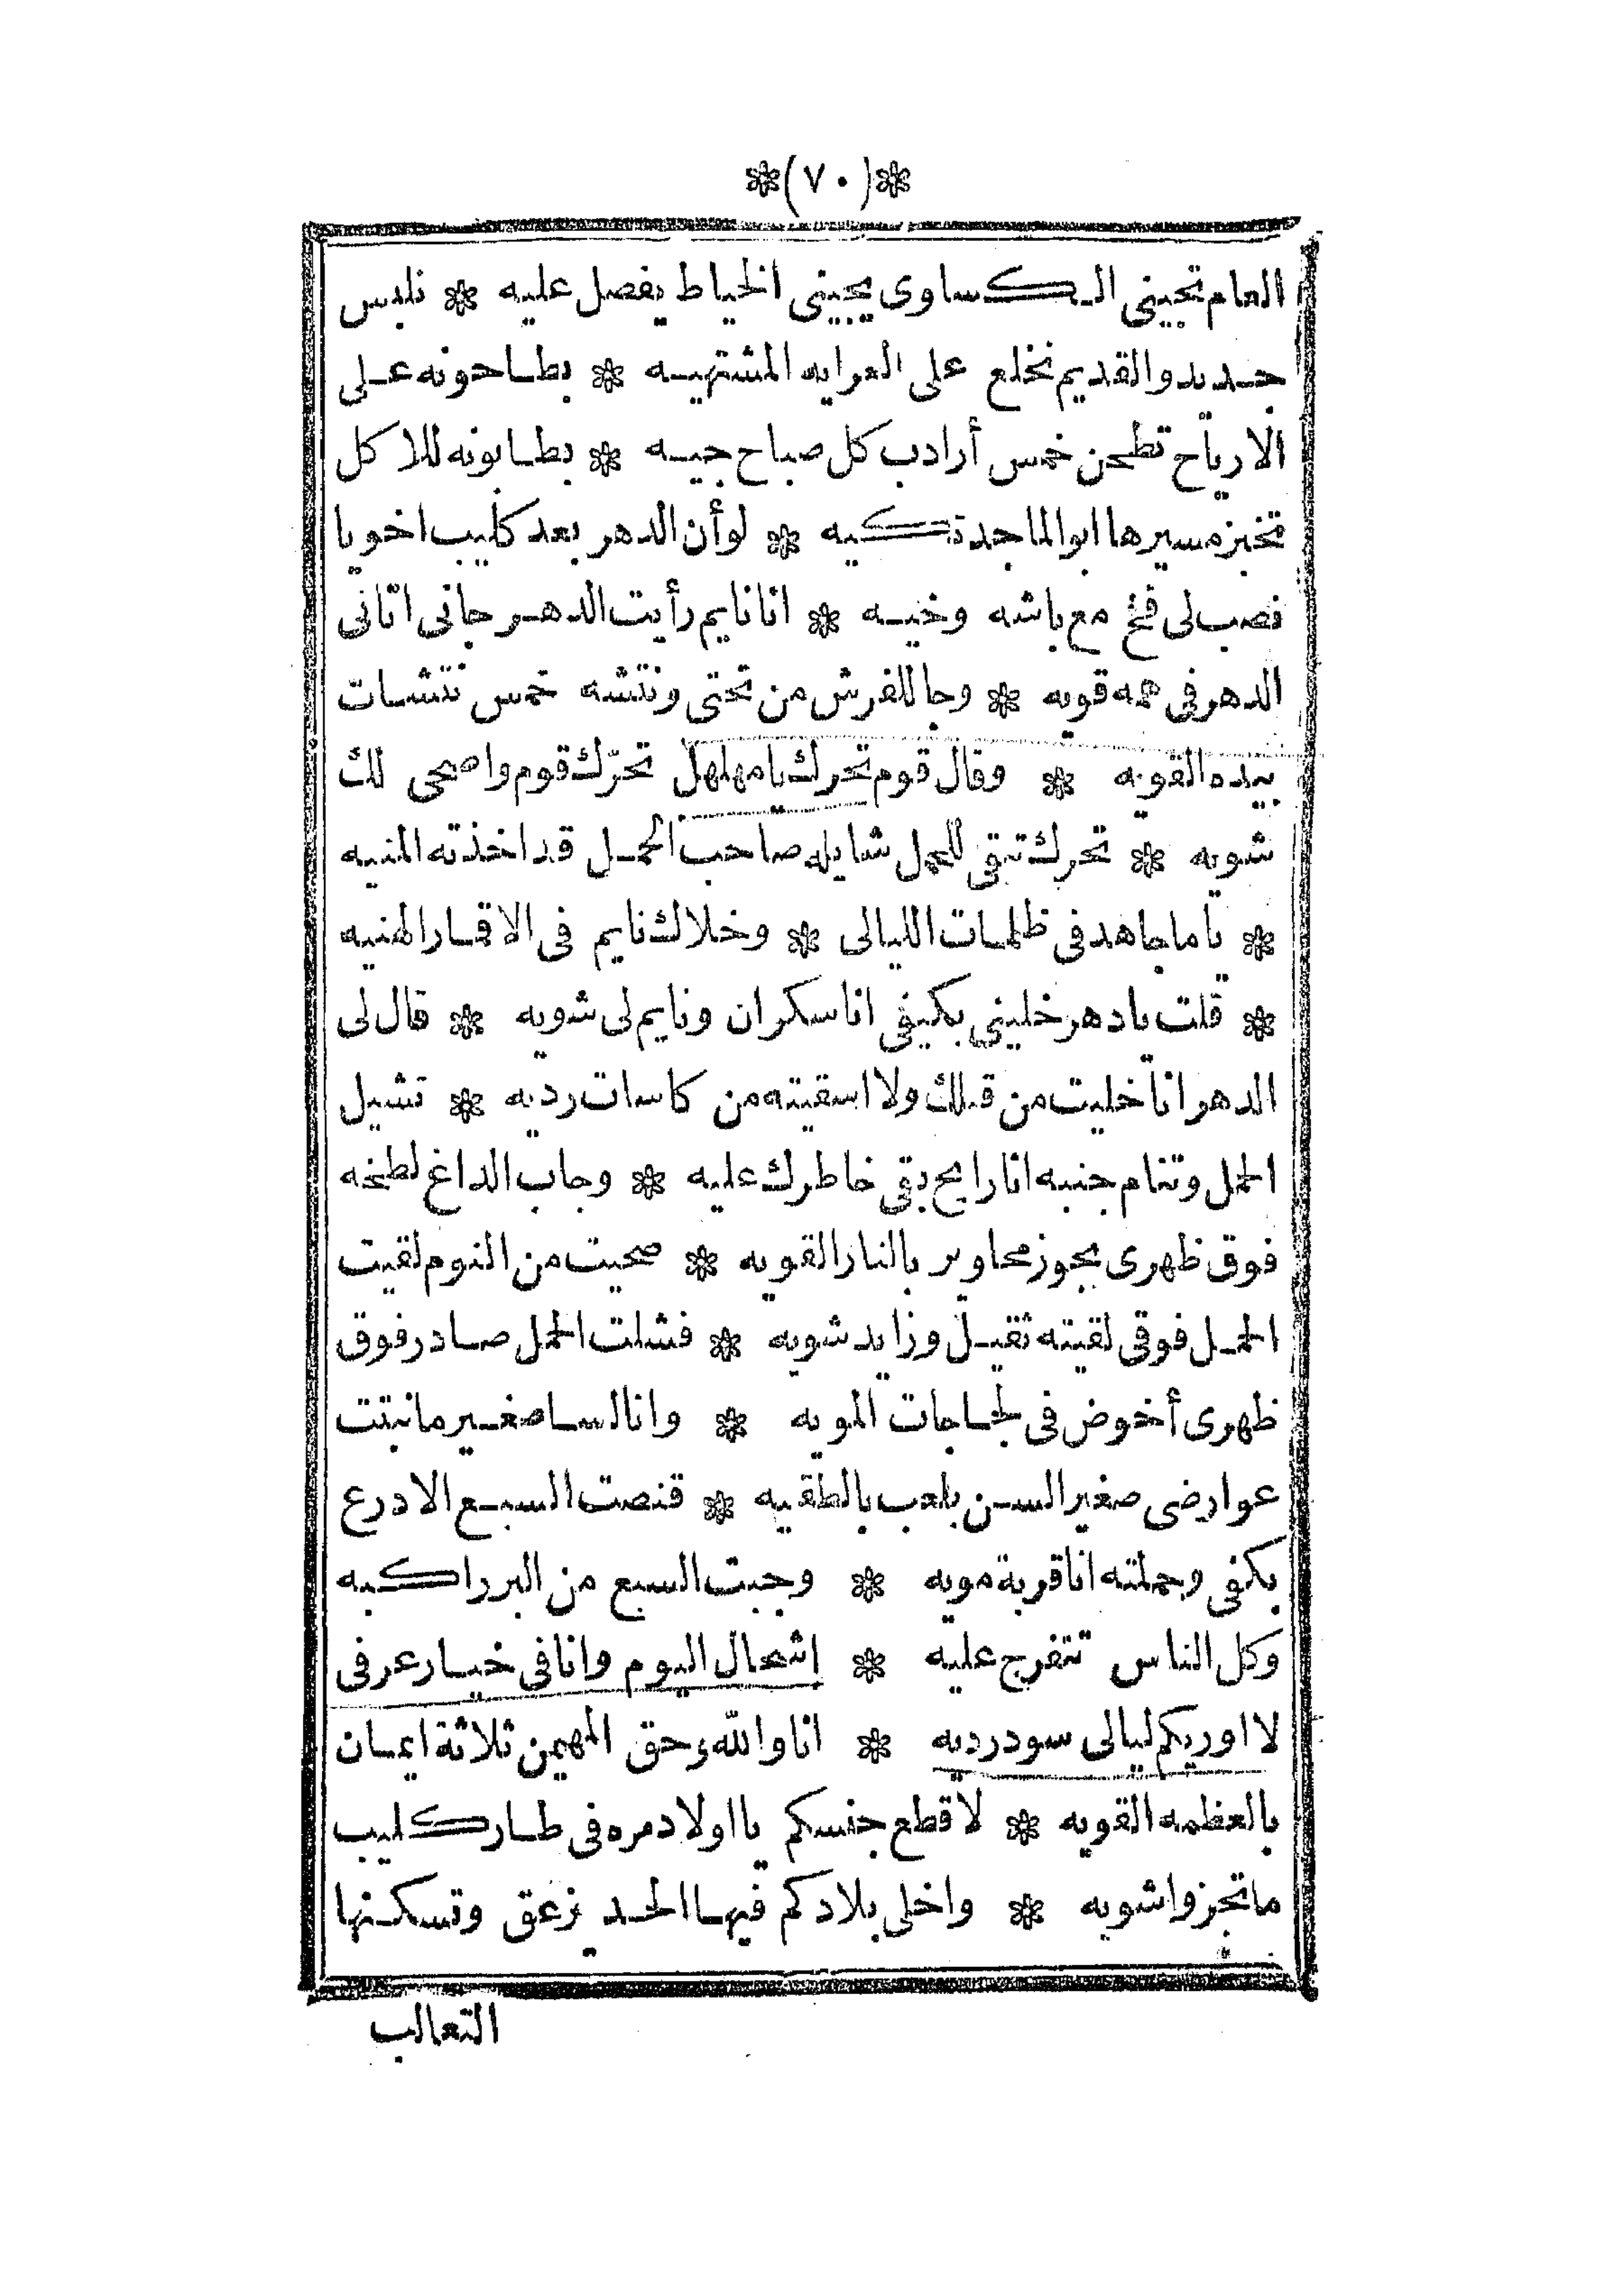 ❊(٧٠)❊
العام تجيني الكساوى يجينى الخياط يفصل عليه ❊ نلبس
جديد والقديم نخلع على العرايه المشتهيه ❊ بطاحونه على
الارياح تطحن خمس أرادب كل صباح جيه ❊ بطابونه للاكل
تخبز مسيرها ابو الماجدة كيه ❊ لو أن الدهر بعد كليب اخويا
نصب لى فخ مع باشه وخيه ❊ انا نايم رأيت الدهر جانى اتانى
الدهر فى همه قويه ❊ وجا للفرش من تحتى ونتشه خمس نتشات
بيده القويه ❊ وقال قوم تحرك يا مهلهل تحرّك قوم واصحى لك
شويه ❊ تحرك تبقى للحمل شايله صاحب الحمل قد اخذته المنيه
❊ ياما جاهد فى ظلمات الليالى ❊ وخلاك نايم فى الاقمار الهنيه
❊ قلت يا دهر خلينى بكيفى انا سكران ونايم لى شويه ❊ قال لى
الدهر انا خليت من قبلك ولا اسقيته من كاسات رديه ❊ تشيل
الحمل وتنام جنبه انا رايح بقى خاطرك عليه ❊ وجاب الداغ لطخه
فوق ظهرى بجوز محاوير بالنار القويه ❊ صحيت من النوم لقيت
الحمل فوقى لقيته ثقيل وزايد شويه ❊ فشلت الحمل صادر فوق
ظهرى أخوض فى لجاجات المويه ❊ وانا لسا صغير ما نبتت
عوارضى صغير السن بلعب بالطقيه ❊ قنصت السبع الادرع
بكفى وحملته انا قربة مويه ❊ وجبت السبع من البر راكبه
وكل الناس تتفرج عليه ❊ إشحال اليوم وانا فى خيار عرفى
لا اوريكم ليالى سود رديه ❊ انا والله وحق المهيمن ثلاثة ايمان
بالعظمه القويه ❊ لاقطع جنسكم يا اولاد مره فى طار كليب
ما تجزوا شويه ❊ واخلى بلادكم فيها الحد يزعق وتسكنها
التعالب